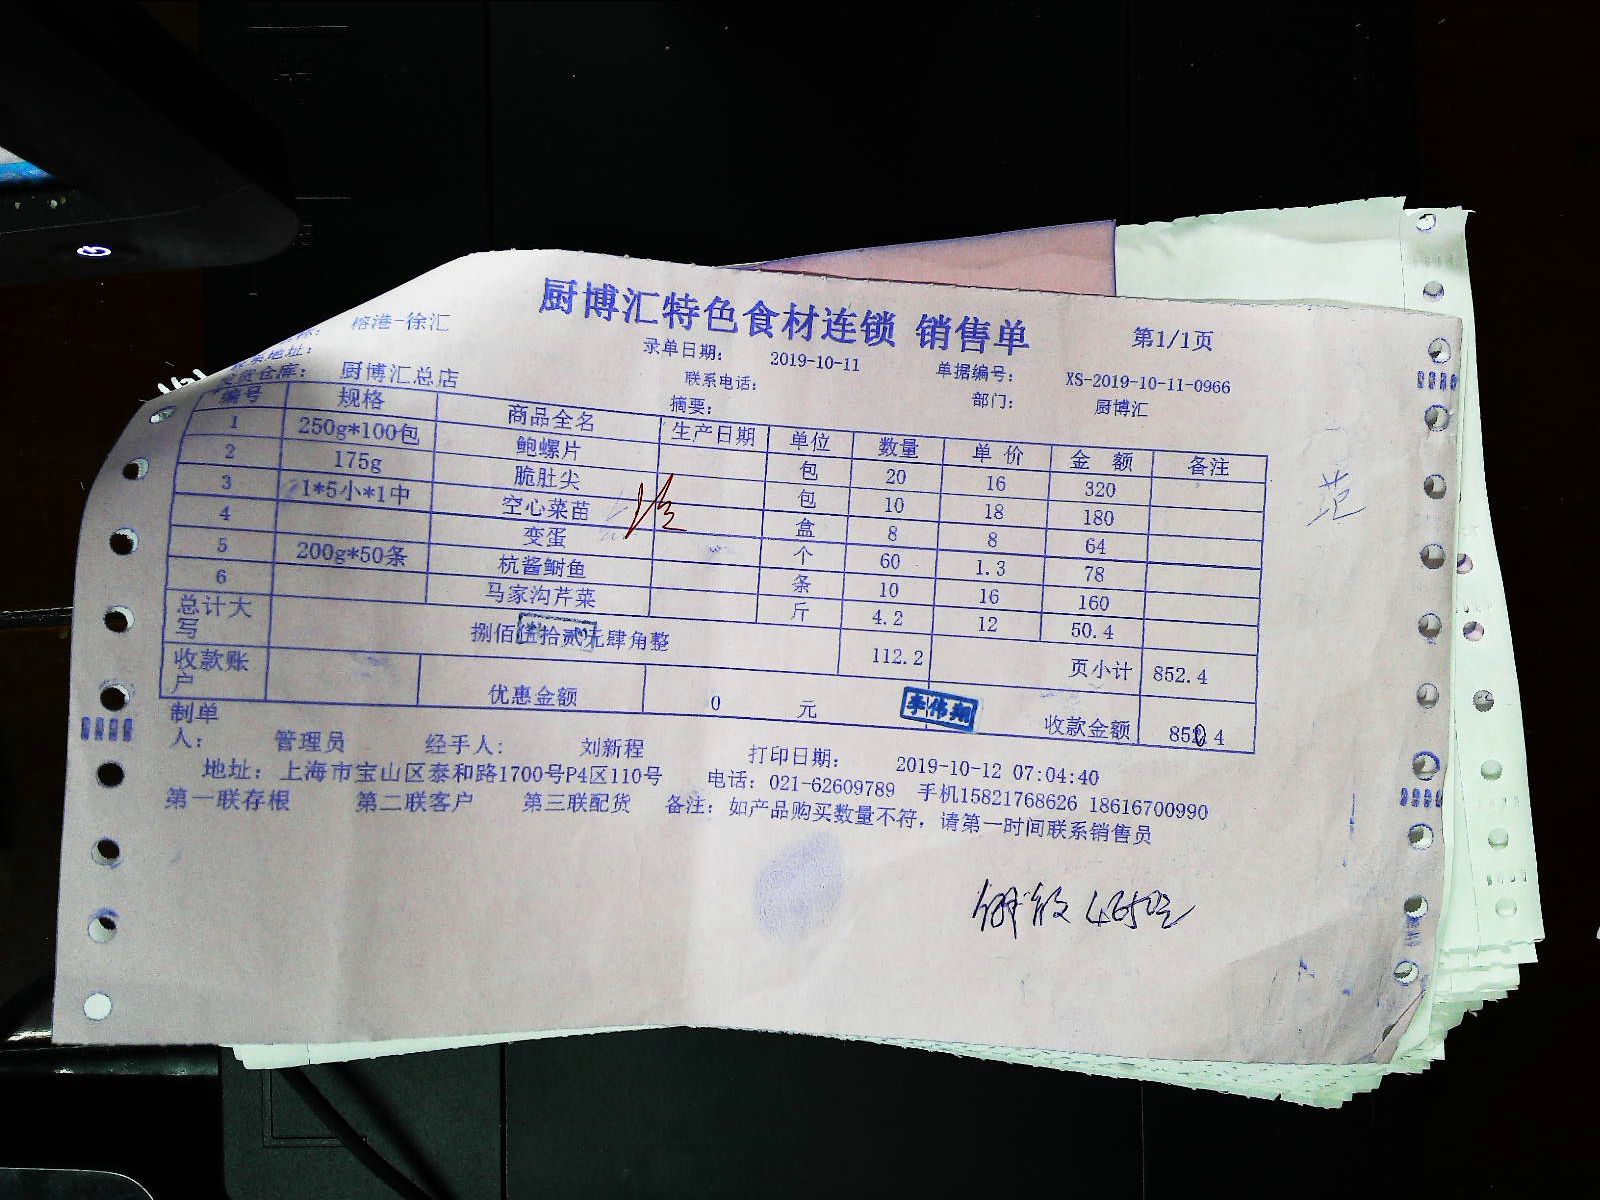 厨博汇特色食材连锁 销售单 第1/1页
榕港-徐汇 录单日期: 2019-10-11 单据编号: XS-2019-10-11-0966
地址: 联系电话: 部门: 厨博汇
仓库: 厨博汇总店 摘要:
编号 规格 商品全名 生产日期 单位 数量 单 价 金 额 备注
1 250g*100包 鲍螺片 包 20 16 320
2 175g 脆肚尖 包 10 18 180
3 1*5小*1中 空心菜苗 盒 8 8 64
4 变蛋 个 60 1.3 78
5 200g*50条 杭酱鲥鱼 条 10 16 160
6 马家沟芹菜 斤 4.2 12 50.4
总计大写 捌佰伍拾贰元肆角整 112.2 页小计 852.4
收款账户 优惠金额 0 元 李伟翔 收款金额 852.4
制单人: 管理员 经手人: 刘新程 打印日期: 2019-10-12 07:04:40
地址: 上海市宝山区泰和路1700号P4区110号 电话: 021-62609789 手机15821768626 18616700990
第一联存根 第二联客户 第三联配货 备注: 如产品购买数量不符，请第一时间联系销售员
范